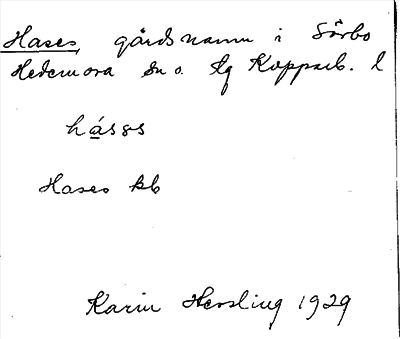 Hases, gårdsnamn i Sörbo
Hedemora sn o. lg Kopparb. l
hásas
Hases kb
Karin Hessling 1929